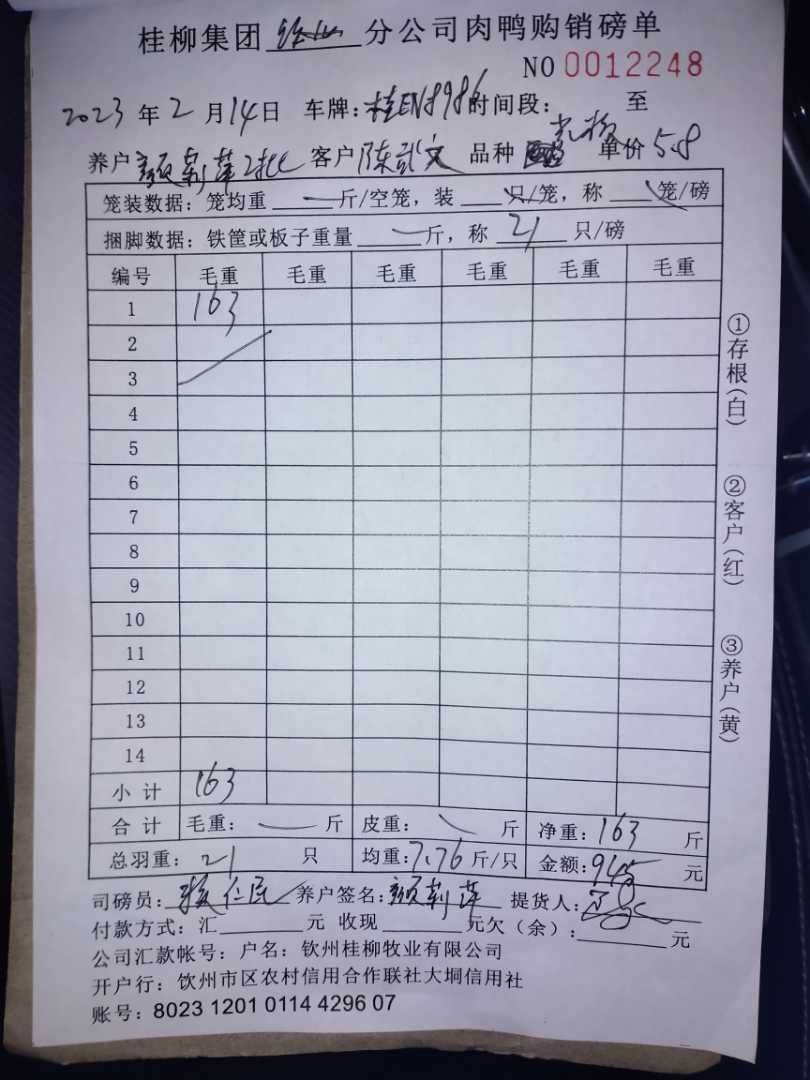 桂柳集团 分公司肉鸭购销磅单
NO 0012248
2023年2月14日 车牌:桂EN8986 时间段: 至
养户 颜莉萍2批 客户 陈武文 品种 单价 5.8
笼装数据:笼均重 斤/空笼,装 只/笼,称 笼/磅
捆脚数据:铁筐或板子重量 斤,称 21 只/磅
编号 毛重 毛重 毛重 毛重 毛重 毛重
1 163
2
3
4
5
6
7
8
9
10
11
12
13
14
小计 163
合计 毛重: 斤 皮重: 斤 净重:163 斤
总羽重:21 只 均重:7.76 斤/只 金额:945 元
司磅员: 仁民 养户签名:颜莉萍 提货人:
付款方式:汇 元 收现 元欠(余): 元
公司汇款帐号:户名:钦州桂柳牧业有限公司
开户行:钦州市区农村信用合作联社大垌信用社
账号:8023 1201 0114 4296 07
①存根(白)
②客户(红)
③养户(黄)